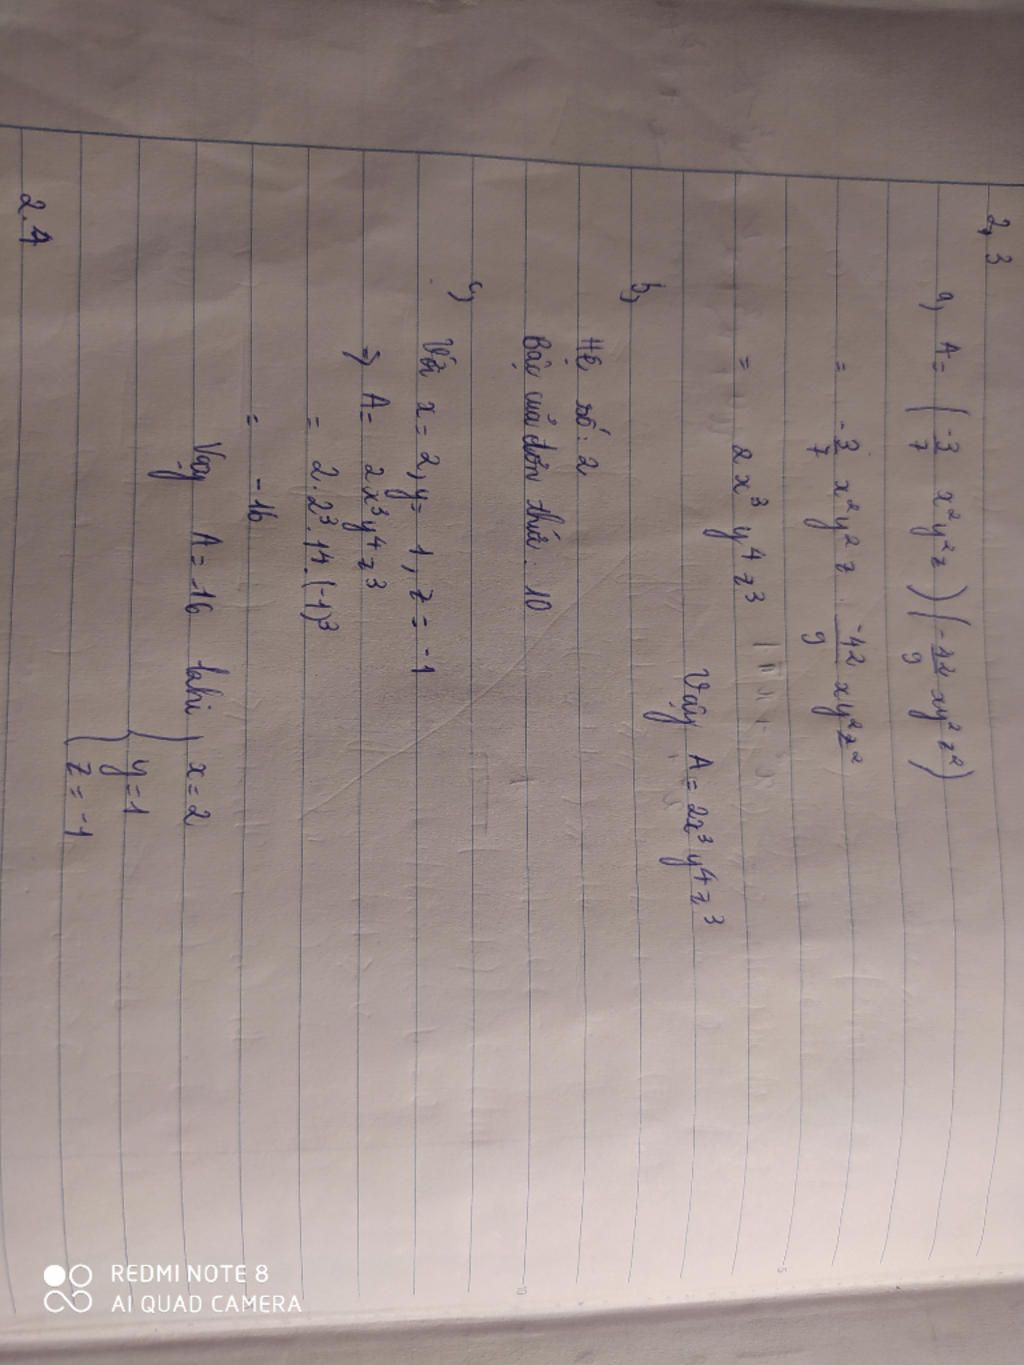 2,3
a, A = ( -3/7 x²y²z ) ( -42/9 xy²z² )
= -3/7 x²y²z . -42/9 xy²z²
= 2x³y⁴z³
Vậy A = 2x³y⁴z³
b,
Hệ số: 2
Bậc của đơn thức: 10
c,
Với x = 2, y = 1, z = -1
=> A = 2x³y⁴z³
= 2.2³.1⁴.(-1)³
= -16
Vậy A = -16 khi { x = 2
{ y = 1
{ z = -1
2.4
REDMI NOTE 8
AI QUAD CAMERA